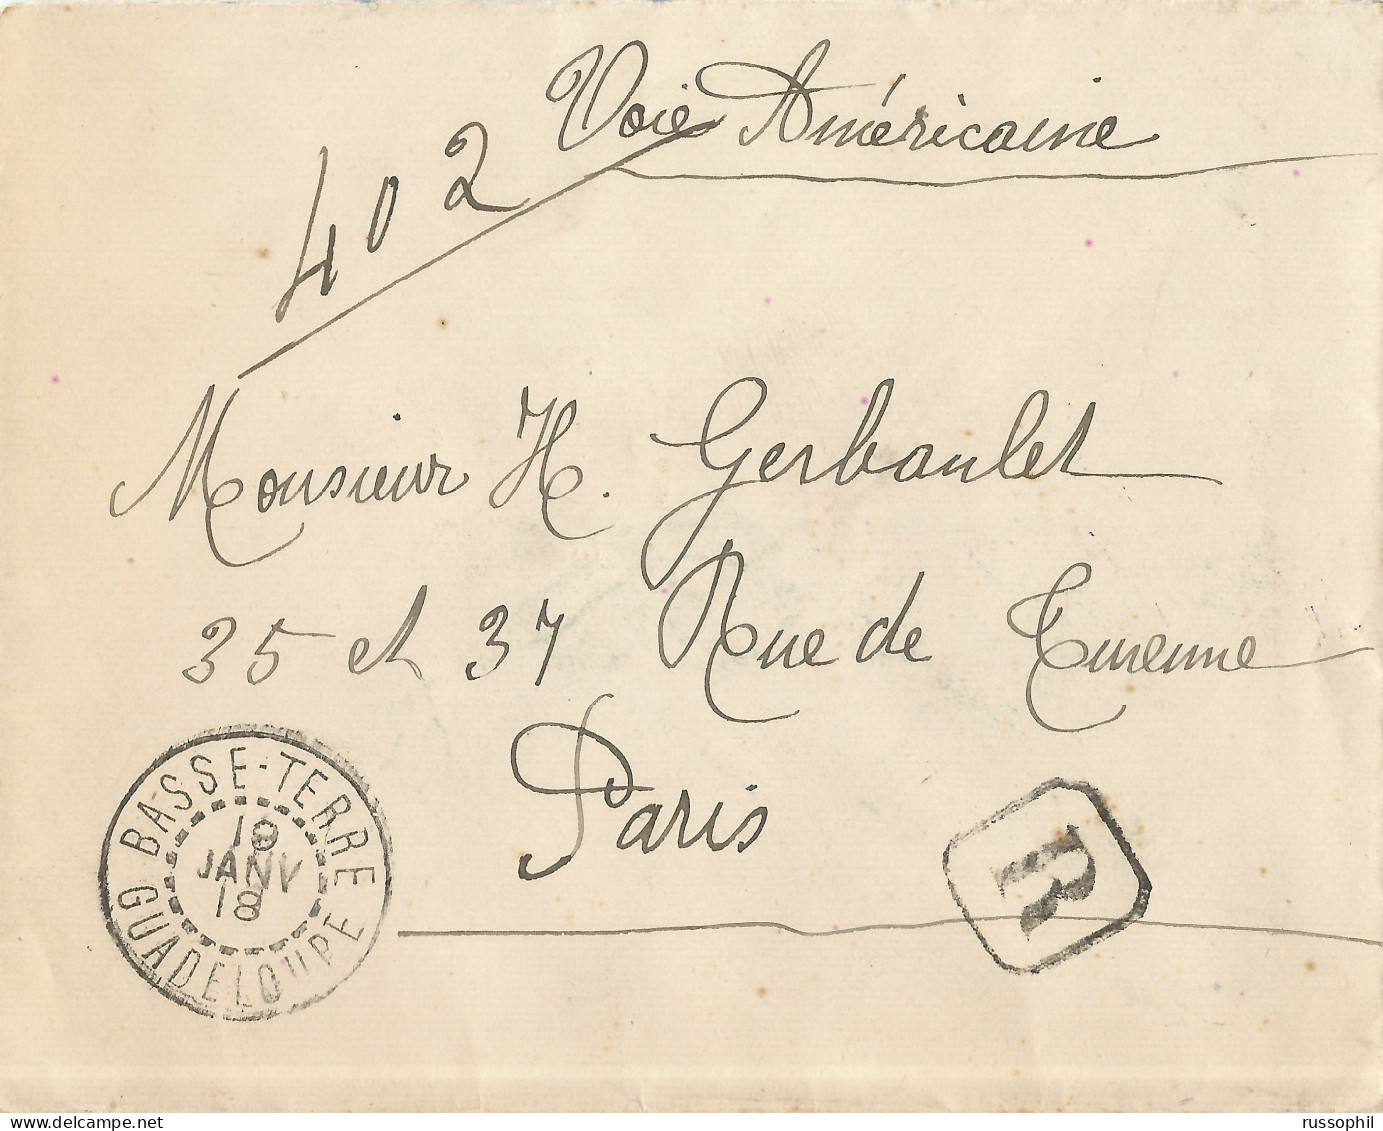 Voie Américaine
402
Monsieur H. Gerbault
35 et 37 Rue de Turenne
Paris
BASSE-TERRE
18
JANV
18
GUADELOUPE
R
russophil